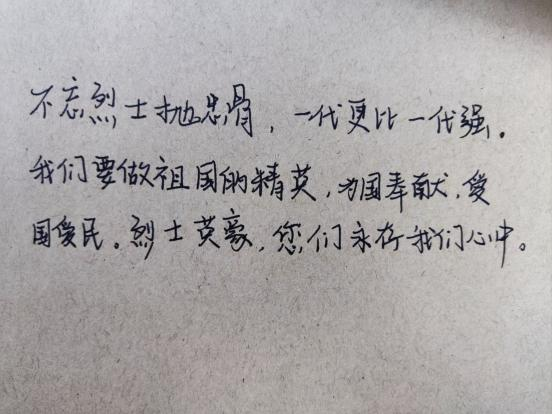 不忘烈士抛忠骨，一代更比一代强。
我们要做祖国的精英，为国奉献，爱
国爱民。烈士英豪，您们永存我们心中。